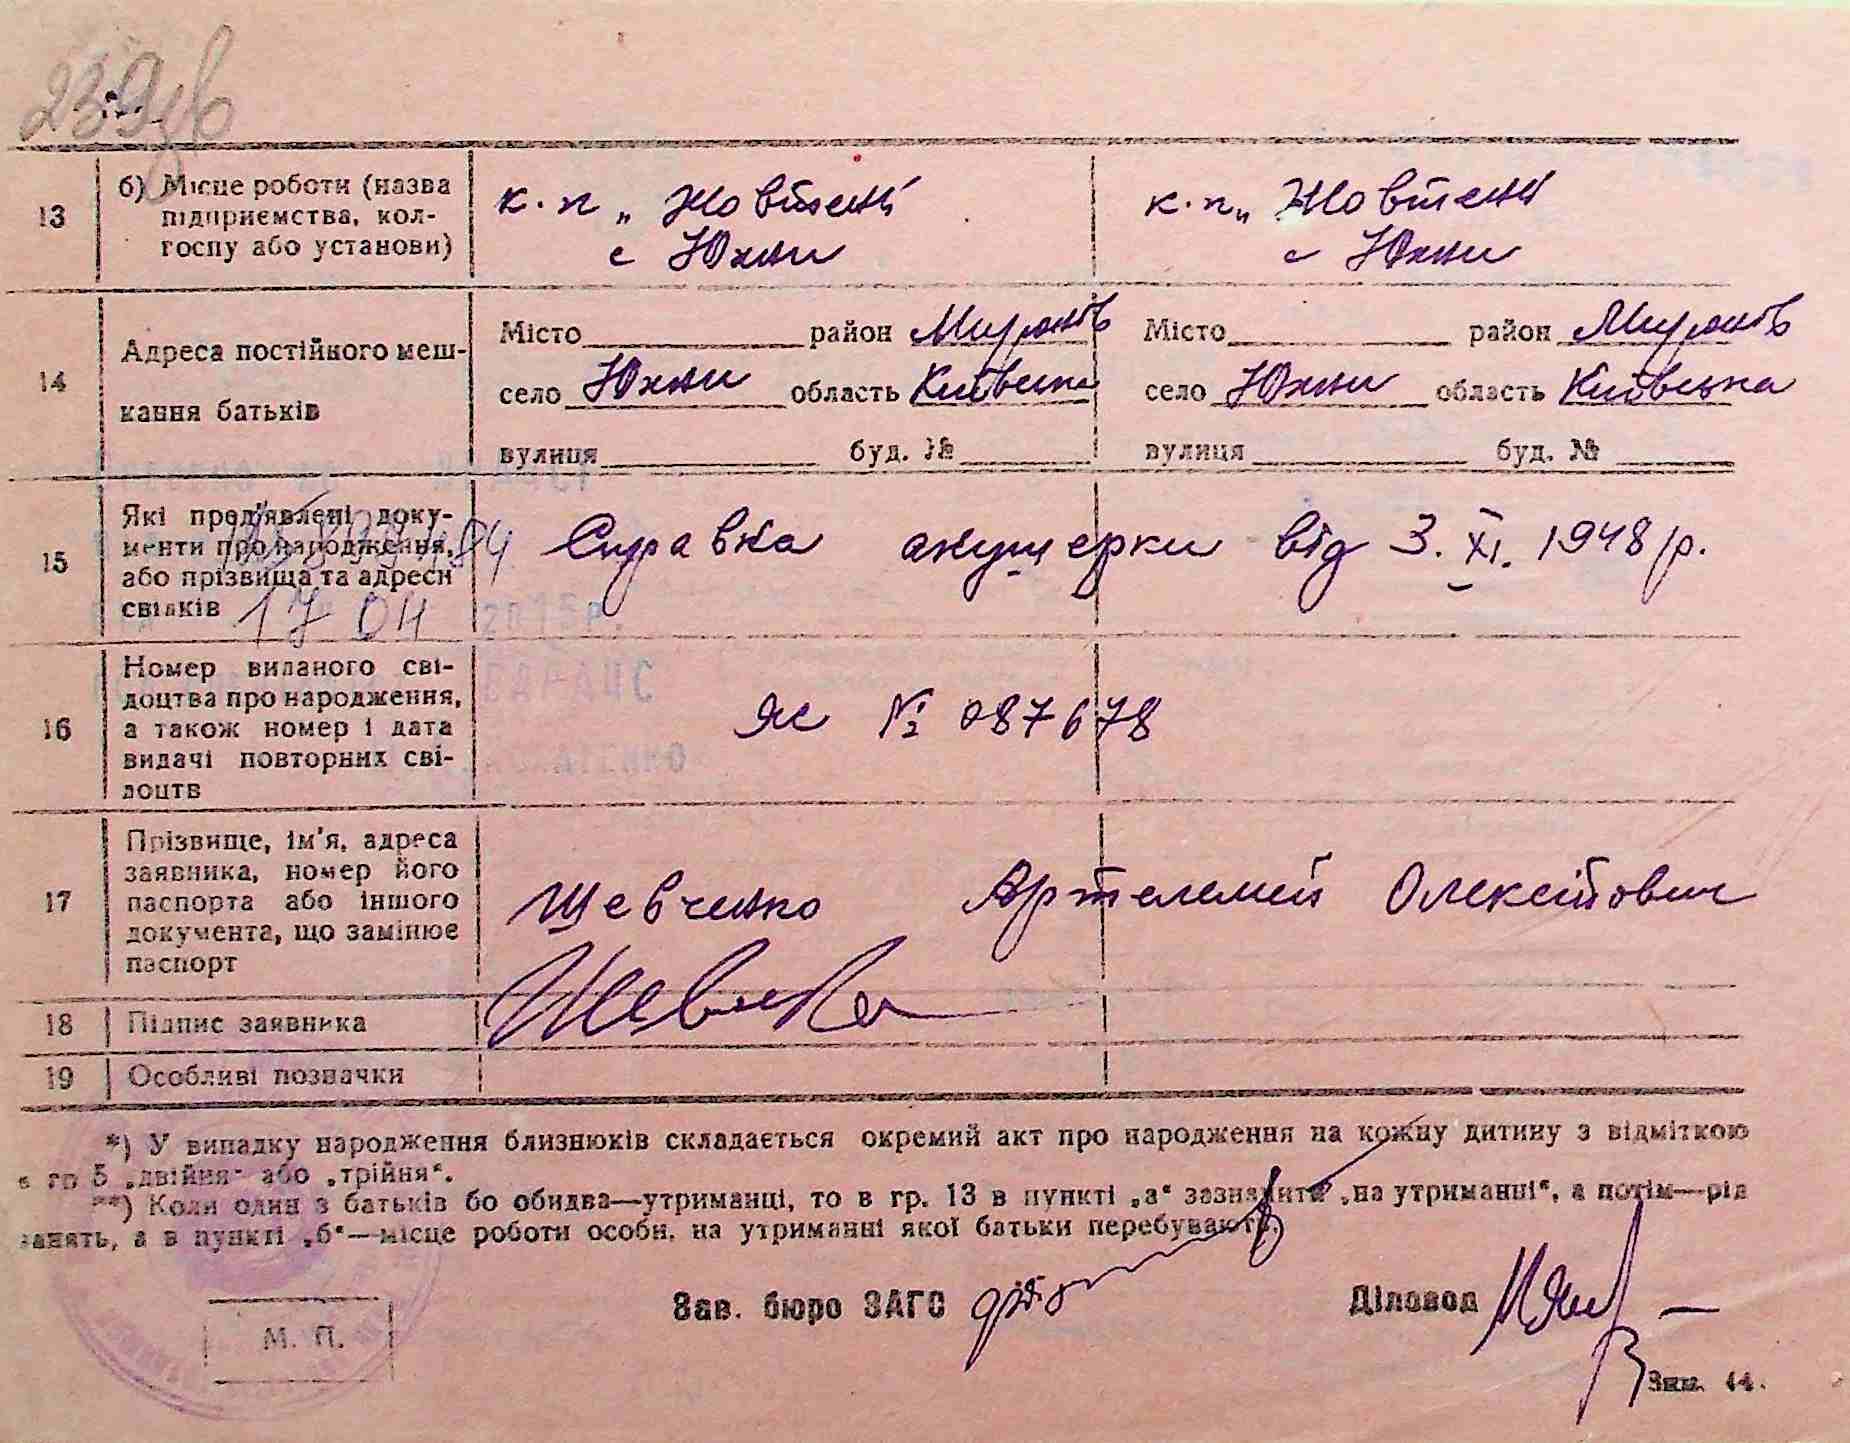 239зв
13 б) Місце роботи (назва
підприємства, кол-
госпу або установи)
к.п „Жовтень" к.п „Жовтень"
с Юхни с Юхни
14 Адреса постійного меш-
кання батьків
Місто район Миронів Місто район Миронів
село Юхни область Київська село Юхни область Київська
вулиця буд. № вулиця буд. №
15 Які пред'явлені доку-
менти про народження,
або прізвища та адреси
свідків
Справка акушерки від 3. XI. 1948 р.
17 04 2015р.
16 Номер виданого сві-
доцтва про народження,
а також номер і дата
видачі повторних сві-
доцтв
ЯС № 087678
17 Прізвище, ім'я, адреса
заявника, номер його
паспорта або іншого
документа, що замінює
паспорт
Шевченко Артелемей Олексійович
18 Підпис заявника
19 Особливі позначки
*) У випадку народження близнюків складається окремий акт про народження на кожну дитину з відміткою
в гр 5 „двійня" або „трійня".
**) Коли один з батьків бо обидва—утриманці, то в гр. 13 в пункті „а" зазначити „на утриманні", а потім—рід
занять, а в пункті „б"—місце роботи особи, на утриманні якої батьки перебувають.
Зав. бюро ЗАГС Діловод
М. П.
Зам. 44.